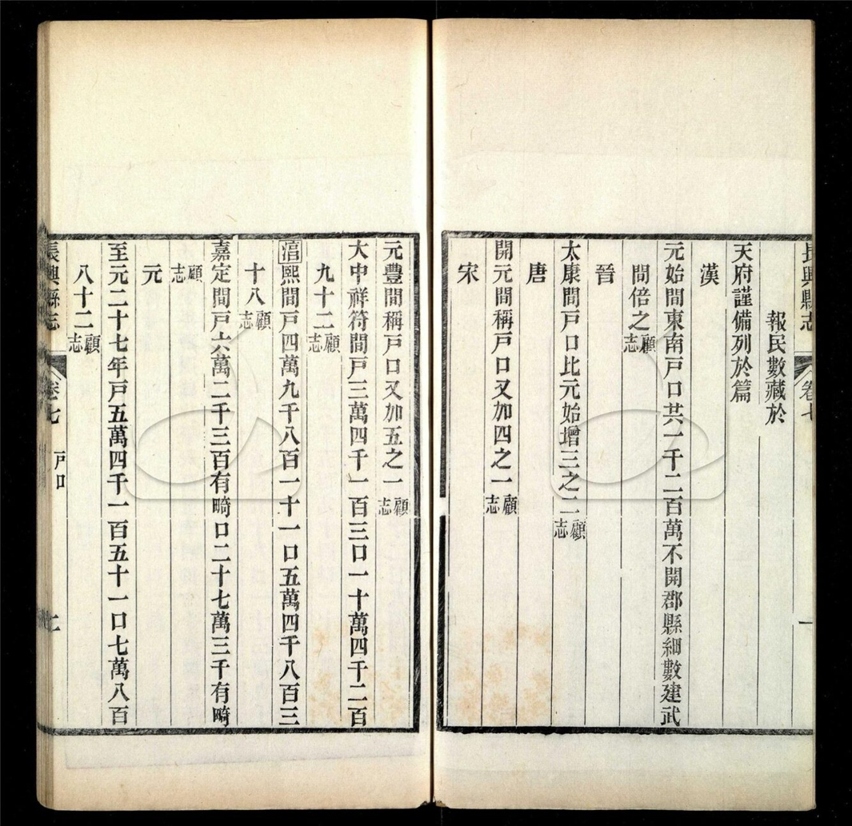 長興縣志
卷七
一
報民數藏於
天府謹備列於篇
漢
元始間東南戸口共一千二百萬不開郡縣細數建武
間倍之顧志
晉
太康間戸口比元始增三之二顧志
唐
開元間稱戸口又加四之一顧志
宋
元豐間稱戸口又加五之一顧志
大中祥符間戸三萬四千一百三口一十萬四千二百
九十二顧志
湻熙間戸四萬九千八百一十一口五萬四千八百三
十八顧志
嘉定間戸六萬二千三百有畸口二十七萬三千有畸
顧志
元
至元二十七年戸五萬四千一百五十一口七萬八百
八十二顧志
長興縣志
卷七
戸口
二